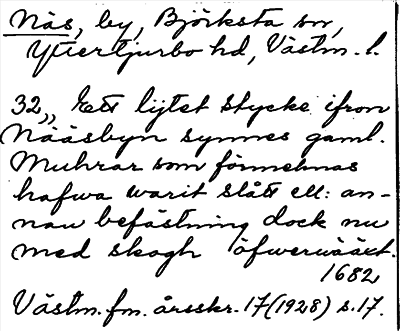 Näs, by, Björksta sn,
Yttertjurbo hd, Västm. l.
32,, Ett lijtet stycke ifrom
Nääsbyn synnes gaml.
Muhrar som förmehnas
hafwa warit slått ell: an-
nan befästning dock nu
med skogh öfwerwäxt.
1682
Västm. fm. årsskr. 17 (1928) s. 17.